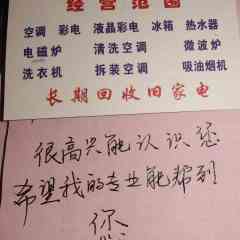 经营范围
空调 彩电 液晶彩电 冰箱 热水器
电磁炉 清洗空调 微波炉
洗衣机 拆装空调 吸油烟机
长期回收旧家电
很高兴能认识您
希望我的专业能帮到
你